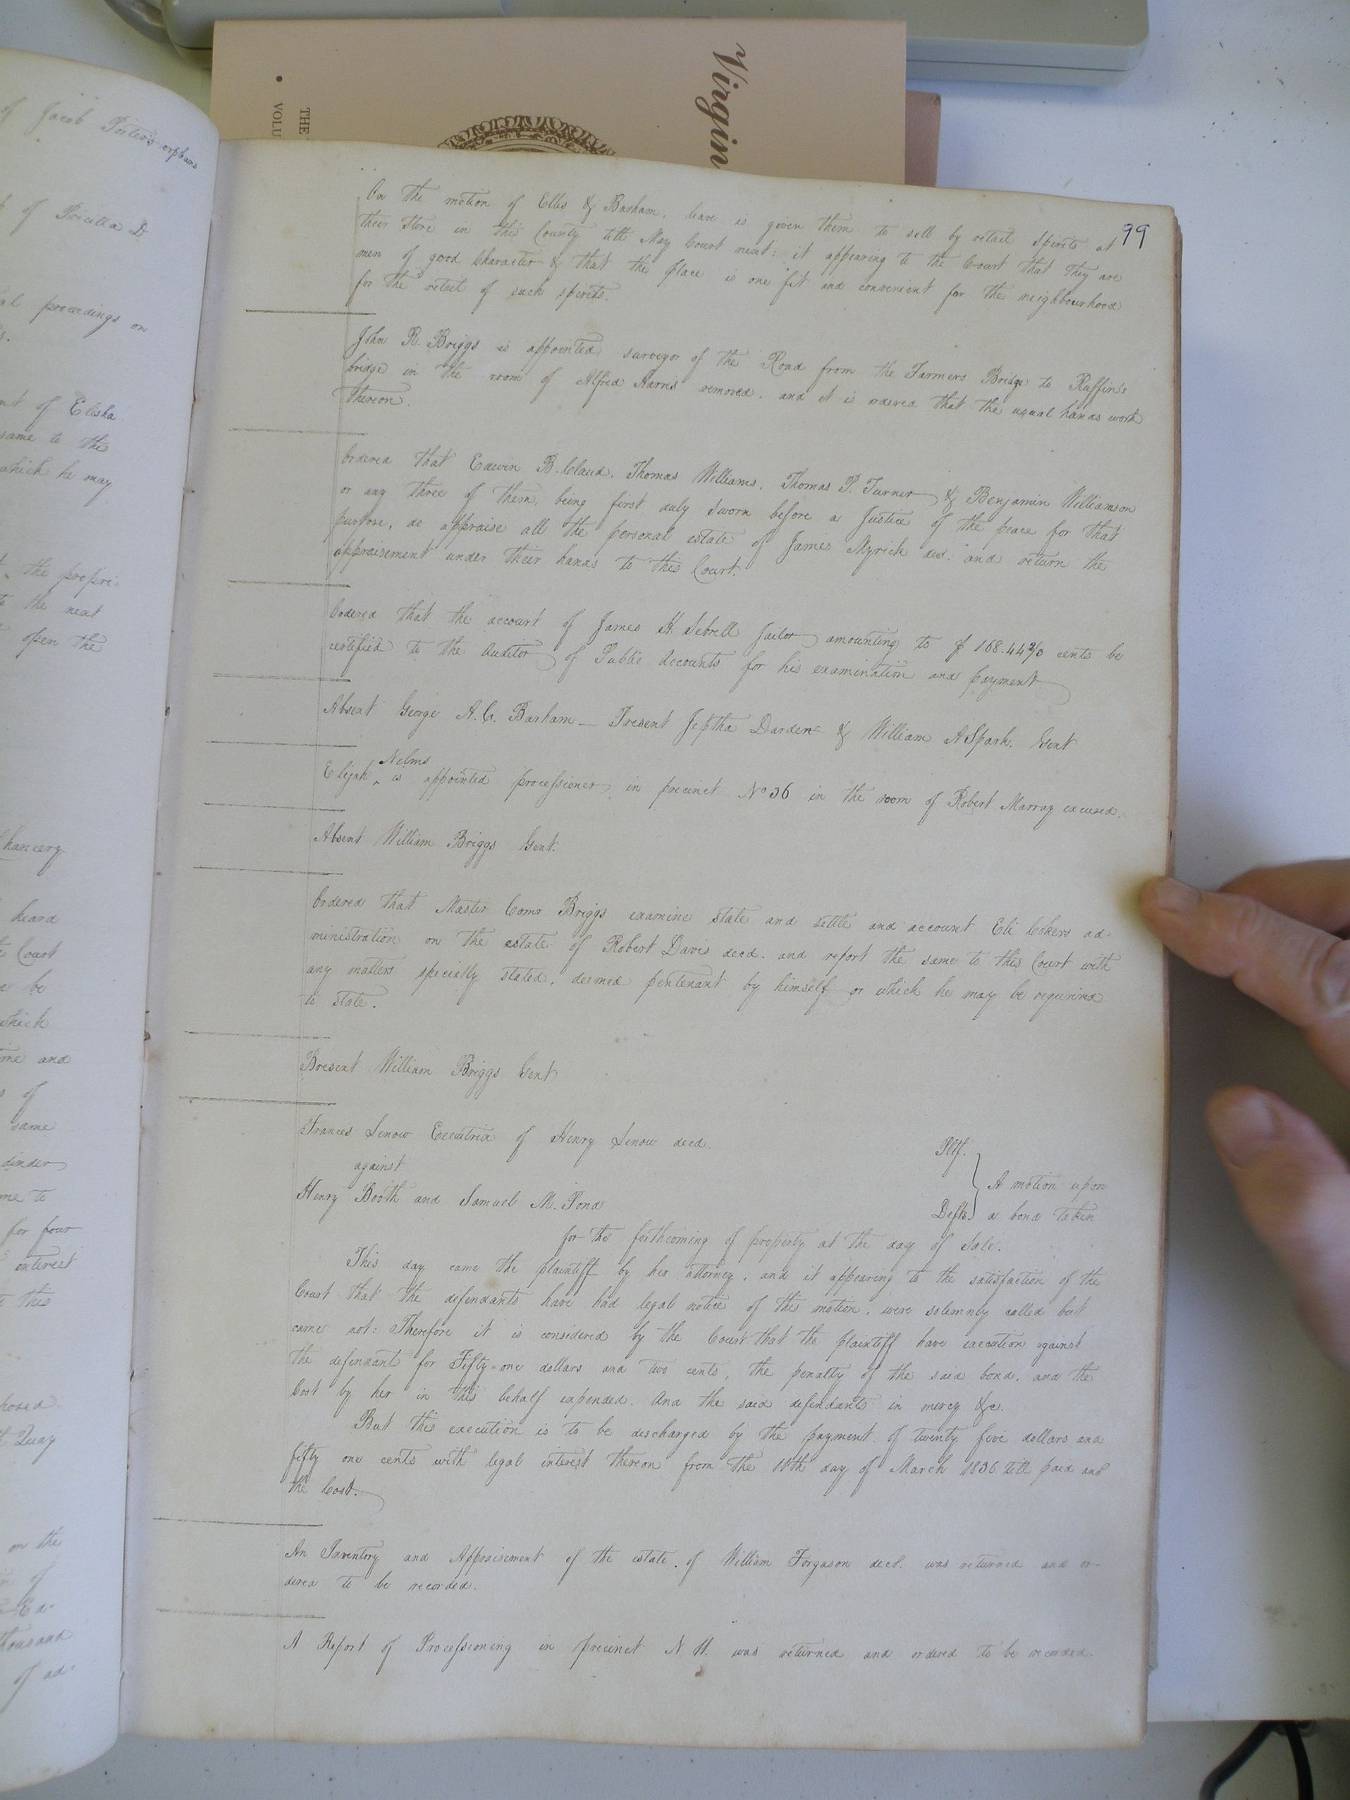 Virgin
THE
VOLU
of Jacob Porter's orphans
of Priscilla D
al proceedings on
nt of Elisha
same to the
which he may
the propri-
to the next
open the
Chancery
heard
Court
be
which
me and
of
same
me to
for four
interest
this
Quay
on the
of
thousand
of ad-
99
On the motion of Ellis & Barham, leave is given them to sell by retail Spirits at
their Store in this County till May Court next: it appearing to the Court that they are
men of good Character & that the place is one fit and convenient for the neighbourhood
for the retail of such spirits.
John R. Briggs is appointed surveyor of the Road from the Farmers Bridge to Ruffin's
bridge in the room of Alfred Harris removed, and it is ordered that the usual hands work
thereon.
Ordered that Edwin B. Claud, Thomas Williams, Thomas P. Turner & Benjamin Williamson
or any three of them, being first duly sworn before a Justice of the peace for that
purpose, do appraise all the personal estate of James Myrick decd. and return the
appraisement under their hands to this Court.
Ordered that the account of James H. Sebrell Jailor amounting to $ 168.44 cents be
certified to the Auditor of Public Accounts for his examination and payment
Absent George A. C. Barham — Present Jeptha Darden & William A Spark. Gent
Nelms
Elijah ^ is appointed processioner in precinct No 36 in the room of Robert Murray excused.
Absent William Briggs Gent.
Ordered that Master Comr Briggs examine state and settle and account Eli Cokers ad-
ministration on the estate of Robert Davis decd. and report the same to this Court with
any matters specially stated, deemed pertenant by himself or which he may be required
to state.
Present William Briggs Gent
Frances Lenow Executrix of Henry Lenow decd. Pltf.
against
A motion upon
Henry Booth and Samuel M. Pond Defts. a bond taken
for the forthcoming of property at the day of Sale.
This day came the plaintiff by her attorney, and it appearing to the satisfaction of the
Court that the defendants have had legal notice of this motion, were solemnly called but
came not: Therefore it is considered by the Court that the plaintiff have execution against
the defendants for Fifty-one dollars and two cents, the penalty of the said bond, and the
Cost by her in this behalf expended. And the said defendants in mercy &c.
But this execution is to be discharged by the payment of twenty five dollars and
fifty one cents with legal interest thereon from the 10th day of March 1836 till paid and
the Cost.
An Inventory and Appraisement of the estate of William Forgason decd. was returned and or-
dered to be recorded.
A Report of Processioning in precinct N 11. was returned and ordered to be recorded.